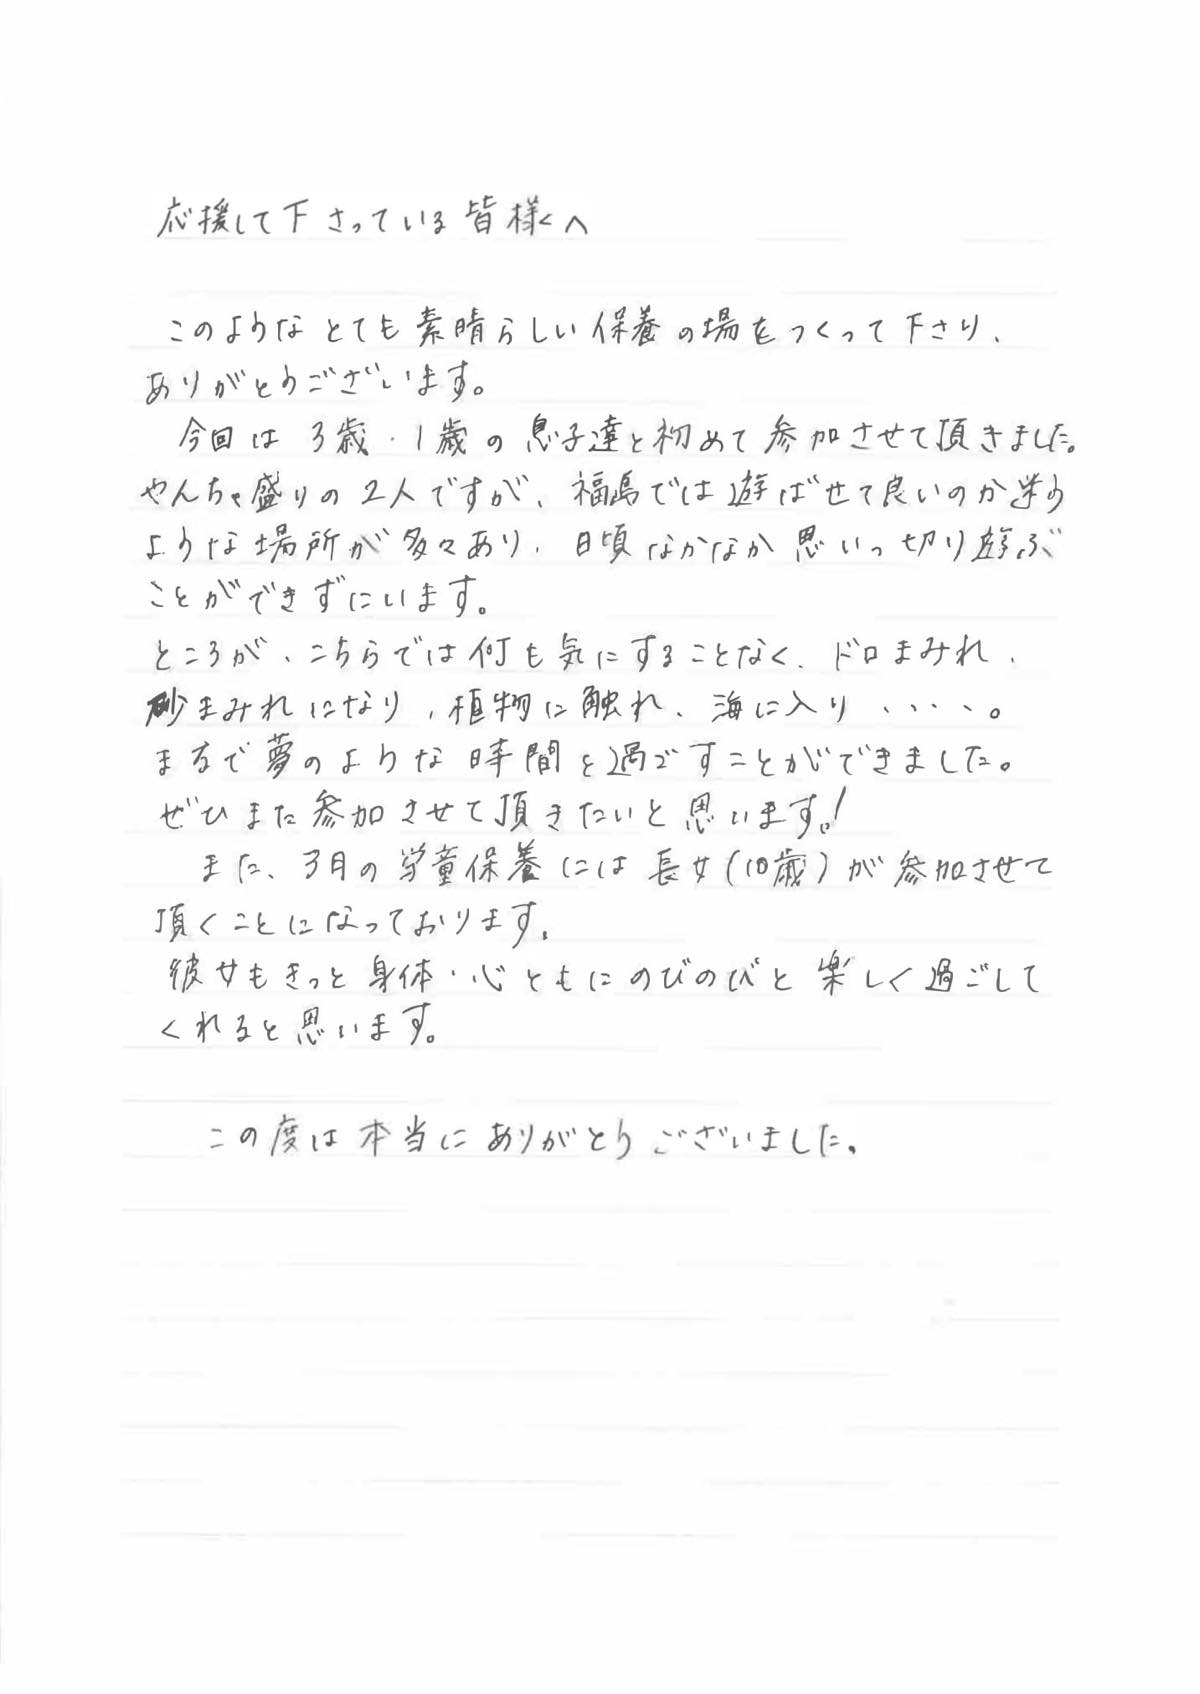 応援して下さっている皆様へ
このようなとても素晴らしい保養の場をつくって下さり、
ありがとうございます。
今回は3歳・1歳の息子達と初めて参加させて頂きました。
やんちゃ盛りの2人ですが、福島では遊ばせて良いのか迷う
ような場所が多々あり、日頃なかなか思いっ切り遊ぶ
ことができずにいます。
ところが、こちらでは何も気にすることなく、ドロまみれ、
砂まみれになり、植物に触れ、海に入り・・・・。
まるで夢のような時間を過ごすことができました。
ぜひまた参加させて頂きたいと思います!
また、3月の学童保養には長女(10歳)が参加させて
頂くことになっております。
彼女もきっと身体・心ともにのびのびと楽しく過ごして
くれると思います。
この度は本当にありがとうございました。